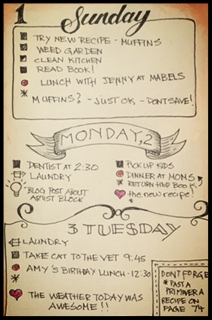 1 Sunday
TRY NEW RECIPE - MUFFINS
WEED GARDEN
CLEAN KITCHEN
READ BOOK!
LUNCH WITH JENNY AT MABELS
* MUFFINS? - JUST OK - DON'T SAVE!
MONDAY, 2
DENTIST AT 2:30
LAUNDRY
BLOG POST ABOUT
ARTIST BLOCK
PICK UP KIDS
DINNER AT MOMS
* RETURN HER BOOK
the new recipe!
3 TUESDAY
LAUNDRY
TAKE CAT TO THE VET 9:45
AMY'S BIRTHDAY LUNCH - 12:30
*
THE WEATHER TODAY WAS
AWESOME!!
DON'T FORGET
* PASTA
PRIMAVERA
RECIPE ON
PAGE 74